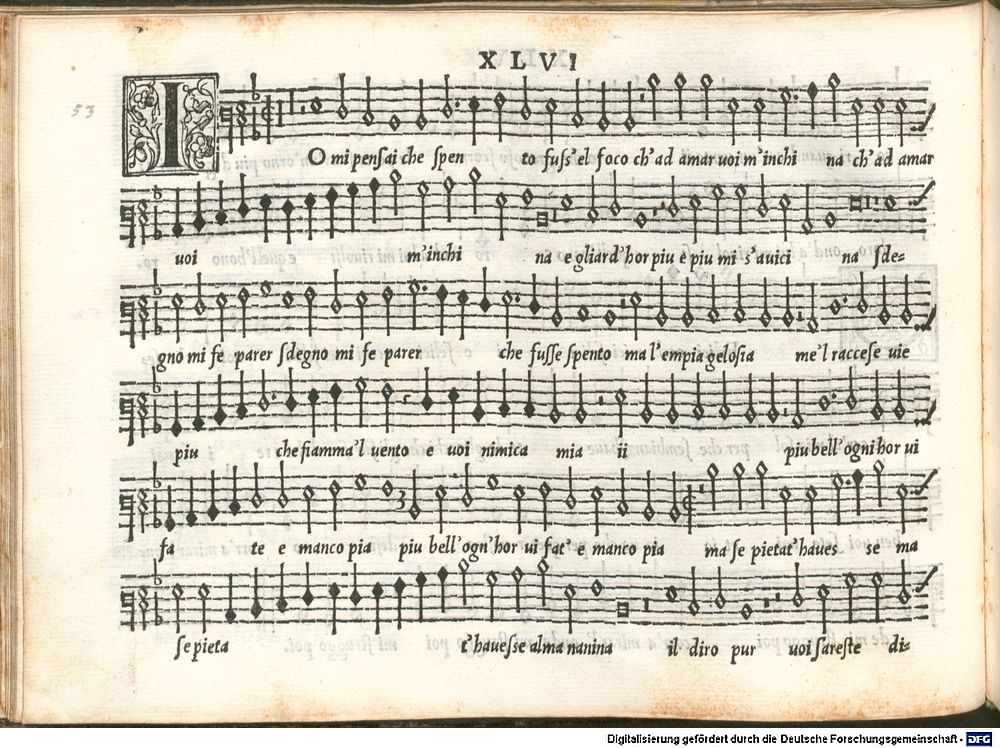 XLVI
53
IO mi pensai che spen to fuss'el foco ch'ad amar uoi m'inchi na ch'ad amar
uoi m'inchi na e gliard'hor piu e piu mi s'auici na sde-
gno mi fe parer sdegno mi fe parer che fusse spento ma l'empia gelosia me'l raccese uie
piu che fiamma'l uento e uoi nimica mia ii piu bell'ogni hor ui
fa te e manco pia piu bell'ogn'hor ui fat'e manco pia ma se pietat'haues se ma
se pieta t'hauesse alma nanina il diro pur uoi sareste di-
Digitalisierung gefördert durch die Deutsche Forschungsgemeinschaft - DFG